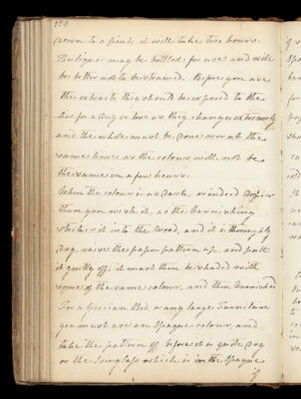 124
down to a pint; it will take two hours.
The liquor may be bottled for use and will
be better not to be strained. Before you use
the extracts they should be exposed to the
air for a day or two as they change extremely
and the whole must be done over at the
same time as the colour will not be
the same in a few hours.
When the colour is as dark, or indeed
than you wish it, as the Varnishing
strikes it into the wood, and it is thoroughly
dry, raise the paper pattern up, and peel
it gently off; it must then be shaded with
some of the same colour, and then Varnished
For a Grecian Bed or any large Furniture
you must use an Opaque colour, and
take the pattern off before it is quite dry
or the Isinglass which is in the Opaque